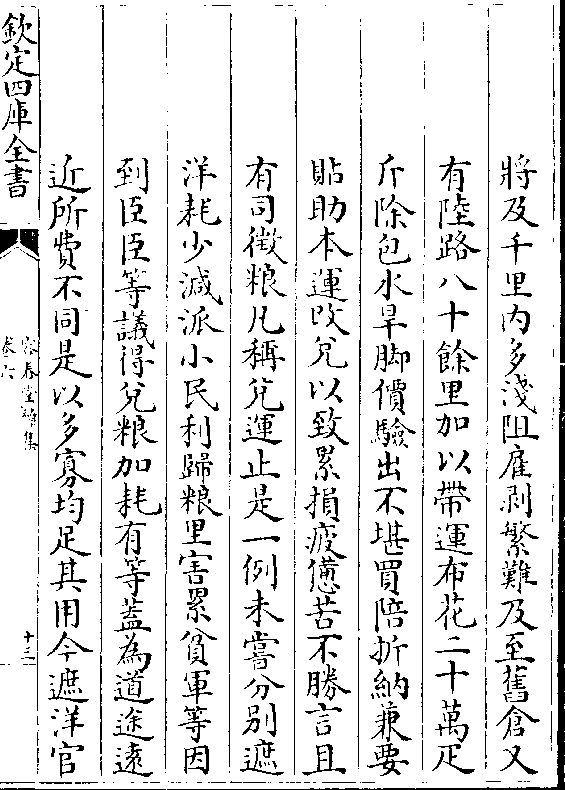 將及千里内多淺阻雇剥繁難及至舊倉又
有陸路八十餘里加以帶運布花二十萬疋
斤除包水旱脚價驗出不堪買陪折納兼要
貼助本運改兊以致累損疲憊苦不勝言且
有司徵粮凡稱兊運止是一例未嘗分别遮
洋耗少減派小民利歸粮里害累貧軍等因
到臣臣等議得兊粮加耗有等蓋為道途遠
近所費不同是以多寡均足其用今遮洋官
欽定四庫全書
容春堂續集
卷六
十三